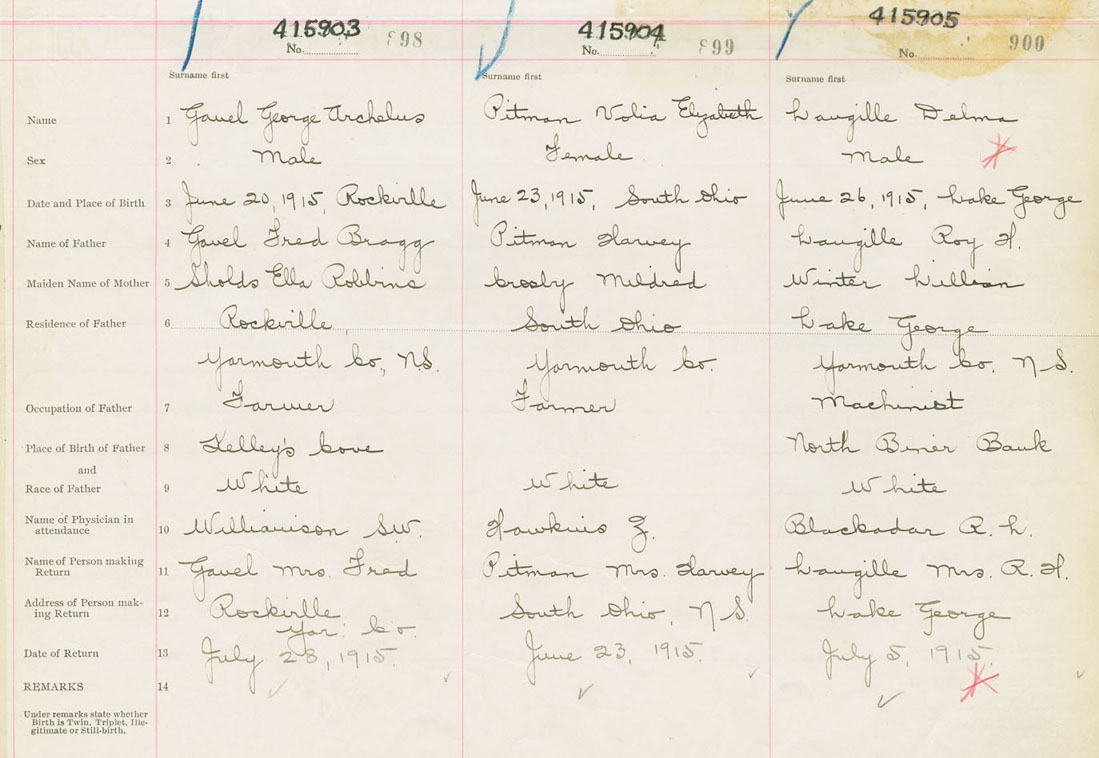 415903 415904 415905
No. 898 No. 899 No. 900
Surname first Surname first Surname first
Name 1 Gavel George Archelus Pitman Volia Elizabeth Langille Delma
Sex 2 Male Female Male
Date and Place of Birth 3 June 20, 1915, Rockville June 23, 1915, South Ohio June 26, 1915, Lake George
Name of Father 4 Gavel Fred Bragg Pitman Harvey Langille Roy H.
Maiden Name of Mother 5 Sholds Ella Robbins Crosby Mildred Winter Lillian
Residence of Father 6 Rockville, South Ohio Lake George
Yarmouth Co., NS. Yarmouth Co. Yarmouth Co. N S.
Occupation of Father 7 Farmer Farmer Machinist
Place of Birth of Father 8 Kelley's Cove North Bank
and
Race of Father 9 White White White
Name of Physician in
attendance 10 Williamson S.W. Hawkins Z. Blackadar R. L.
Name of Person making
Return 11 Gavel Mrs. Fred Pitman Mrs. Harvey Langille Mrs. R. H.
Address of Person mak-
ing Return 12 Rockville South Ohio, N S. Lake George
Yar. Co.
Date of Return 13 July 28, 1915. June 23, 1915. July 5, 1915.
REMARKS 14
Under remarks state whether
Birth is Twin, Triplet, Ille-
gitimate or Still-birth.